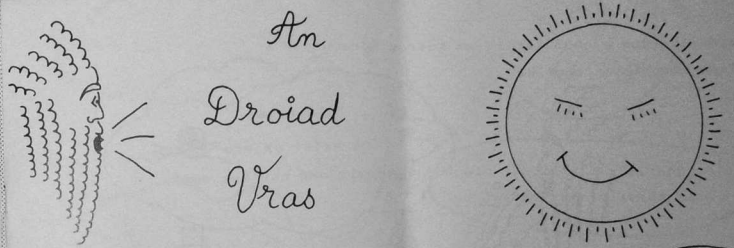 An
Droiad
Vras